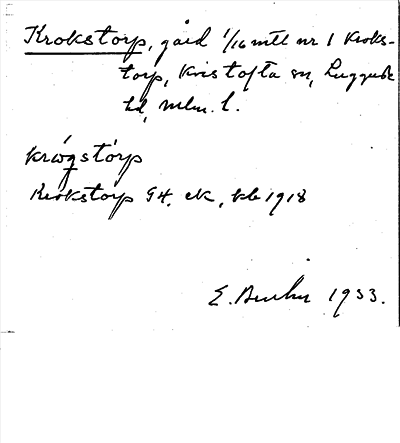 Krokstorp, gård 1/16 mtl nr 1 Kroks-
torp, Kristofta sn, Luggude
hd, Mlm. l.
krǫgstǫrp
Krokstorp GK. ek, kb 1918
E. 1933.